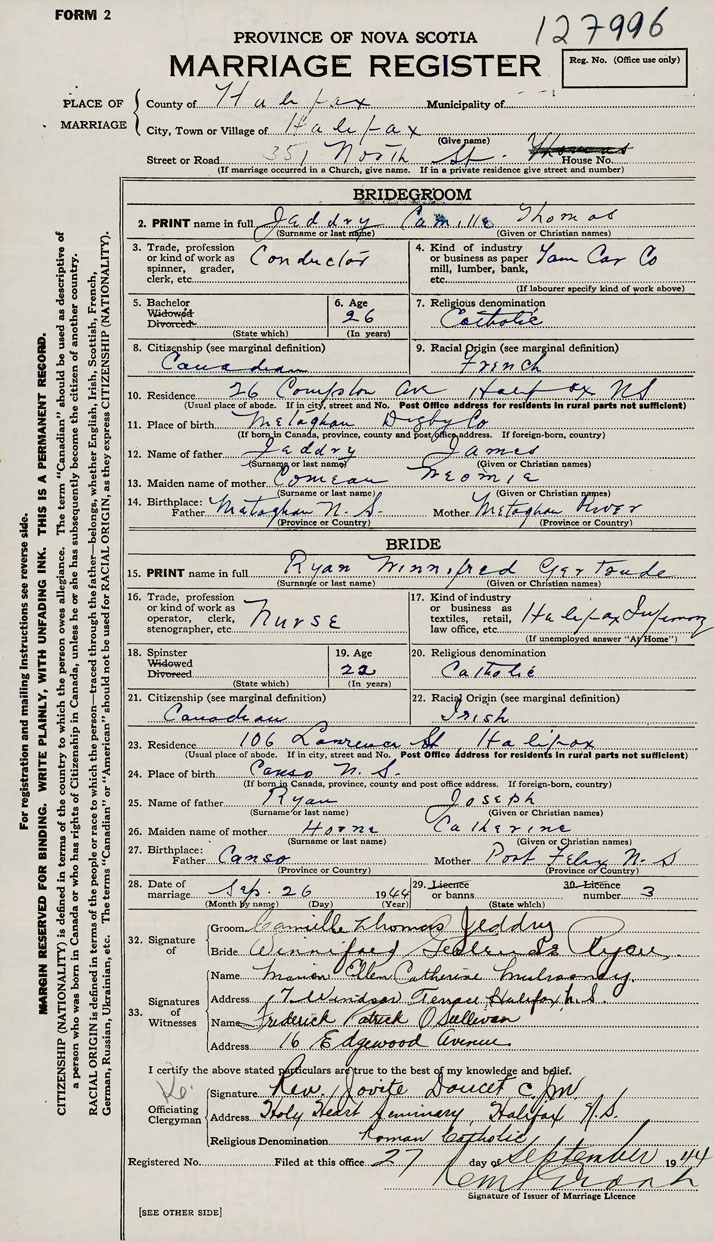 FORM 2
127996
PROVINCE OF NOVA SCOTIA
MARRIAGE REGISTER
Reg. No. (Office use only)
PLACE OF MARRIAGE
County of Halifax Municipality of
City, Town or Village of Halifax
(Give name)
Street or Road 351 North St. Thomas House No.
(If marriage occurred in a Church, give name. If in a private residence give street and number)
BRIDEGROOM
2. PRINT name in full Jeddry Camille Thomas
(Surname or last name) (Given or Christian names)
3. Trade, profession or kind of work as spinner, grader, clerk, etc. Conductor
4. Kind of industry or business as paper mill, lumber, bank, etc. Tam Car Co
(If labourer specify kind of work above)
5. Bachelor Widowed Divorced (State which)
6. Age 26 (In years)
7. Religious denomination Catholic
8. Citizenship (see marginal definition) Canadian
9. Racial Origin (see marginal definition) French
10. Residence 26 Compton Ave Halifax NS
(Usual place of abode. If in city, street and No. Post Office address for residents in rural parts not sufficient)
11. Place of birth Metaghan Digby Co
(If born in Canada, province, county and post office address. If foreign-born, country)
12. Name of father Jeddry James
(Surname or last name) (Given or Christian names)
13. Maiden name of mother Comeau Neomie
(Surname or last name) (Given or Christian names)
14. Birthplace: Father Mataghan N. S. Mother Metaghan River
(Province or Country) (Province or Country)
BRIDE
15. PRINT name in full Ryan Winnifred Gertrude
(Surname or last name) (Given or Christian names)
16. Trade, profession or kind of work as operator, clerk, stenographer, etc. Nurse
17. Kind of industry or business as textiles, retail, law office, etc. Halifax Infirmary
(If unemployed answer "At Home")
18. Spinster Widowed Divorced (State which)
19. Age 22 (In years)
20. Religious denomination Catholic
21. Citizenship (see marginal definition) Canadian
22. Racial Origin (see marginal definition) Irish
23. Residence 106 Lawrence St, Halifax
(Usual place of abode. If in city, street and No. Post Office address for residents in rural parts not sufficient)
24. Place of birth Canso N. S.
(If born in Canada, province, county and post office address. If foreign-born, country)
25. Name of father Ryan Joseph
(Surname or last name) (Given or Christian names)
26. Maiden name of mother Horne Catherine
(Surname or last name) (Given or Christian names)
27. Birthplace: Father Canso Mother Port Felix N. S
(Province or Country) (Province or Country)
28. Date of marriage Sep. 26 1944
(Month by name) (Day) (Year)
29. Licence or banns (State which)
30. Licence number 3
32. Signature of
Groom Camille Thomas Jeddry
Bride Winnifred Gertrude Ryan
33. Signatures of Witnesses
Name Marion Ellen Catherine Mulrooney
Address 7 Windsor Terrace Halifax N. S.
Name Frederick Patrick O'Sullivan
Address 16 Edgewood Avenue
I certify the above stated particulars are true to the best of my knowledge and belief.
Officiating Clergyman
Signature Rev. Jovite Doucet c.j.m.
Address Holy Heart Seminary, Halifax N.S.
Religious Denomination Roman Catholic
Registered No. Filed at this office 27 day of September 1944
Signature of Issuer of Marriage Licence
[SEE OTHER SIDE]
For registration and mailing instructions see reverse side.
MARGIN RESERVED FOR BINDING. WRITE PLAINLY, WITH UNFADING INK. THIS IS A PERMANENT RECORD.
CITIZENSHIP (NATIONALITY) is defined in terms of the country to which the person owes allegiance. The term "Canadian" should be used as descriptive of
a person who was born in Canada or who has rights of Citizenship in Canada, unless he or she has subsequently become the citizen of another country.
RACIAL ORIGIN is defined in terms of the people or race to which the person—traced through the father—belongs, whether English, Irish, Scottish, French,
German, Russian, Ukrainian, etc. The terms "Canadian" or "American" should not be used for RACIAL ORIGIN, as they express CITIZENSHIP (NATIONALITY).